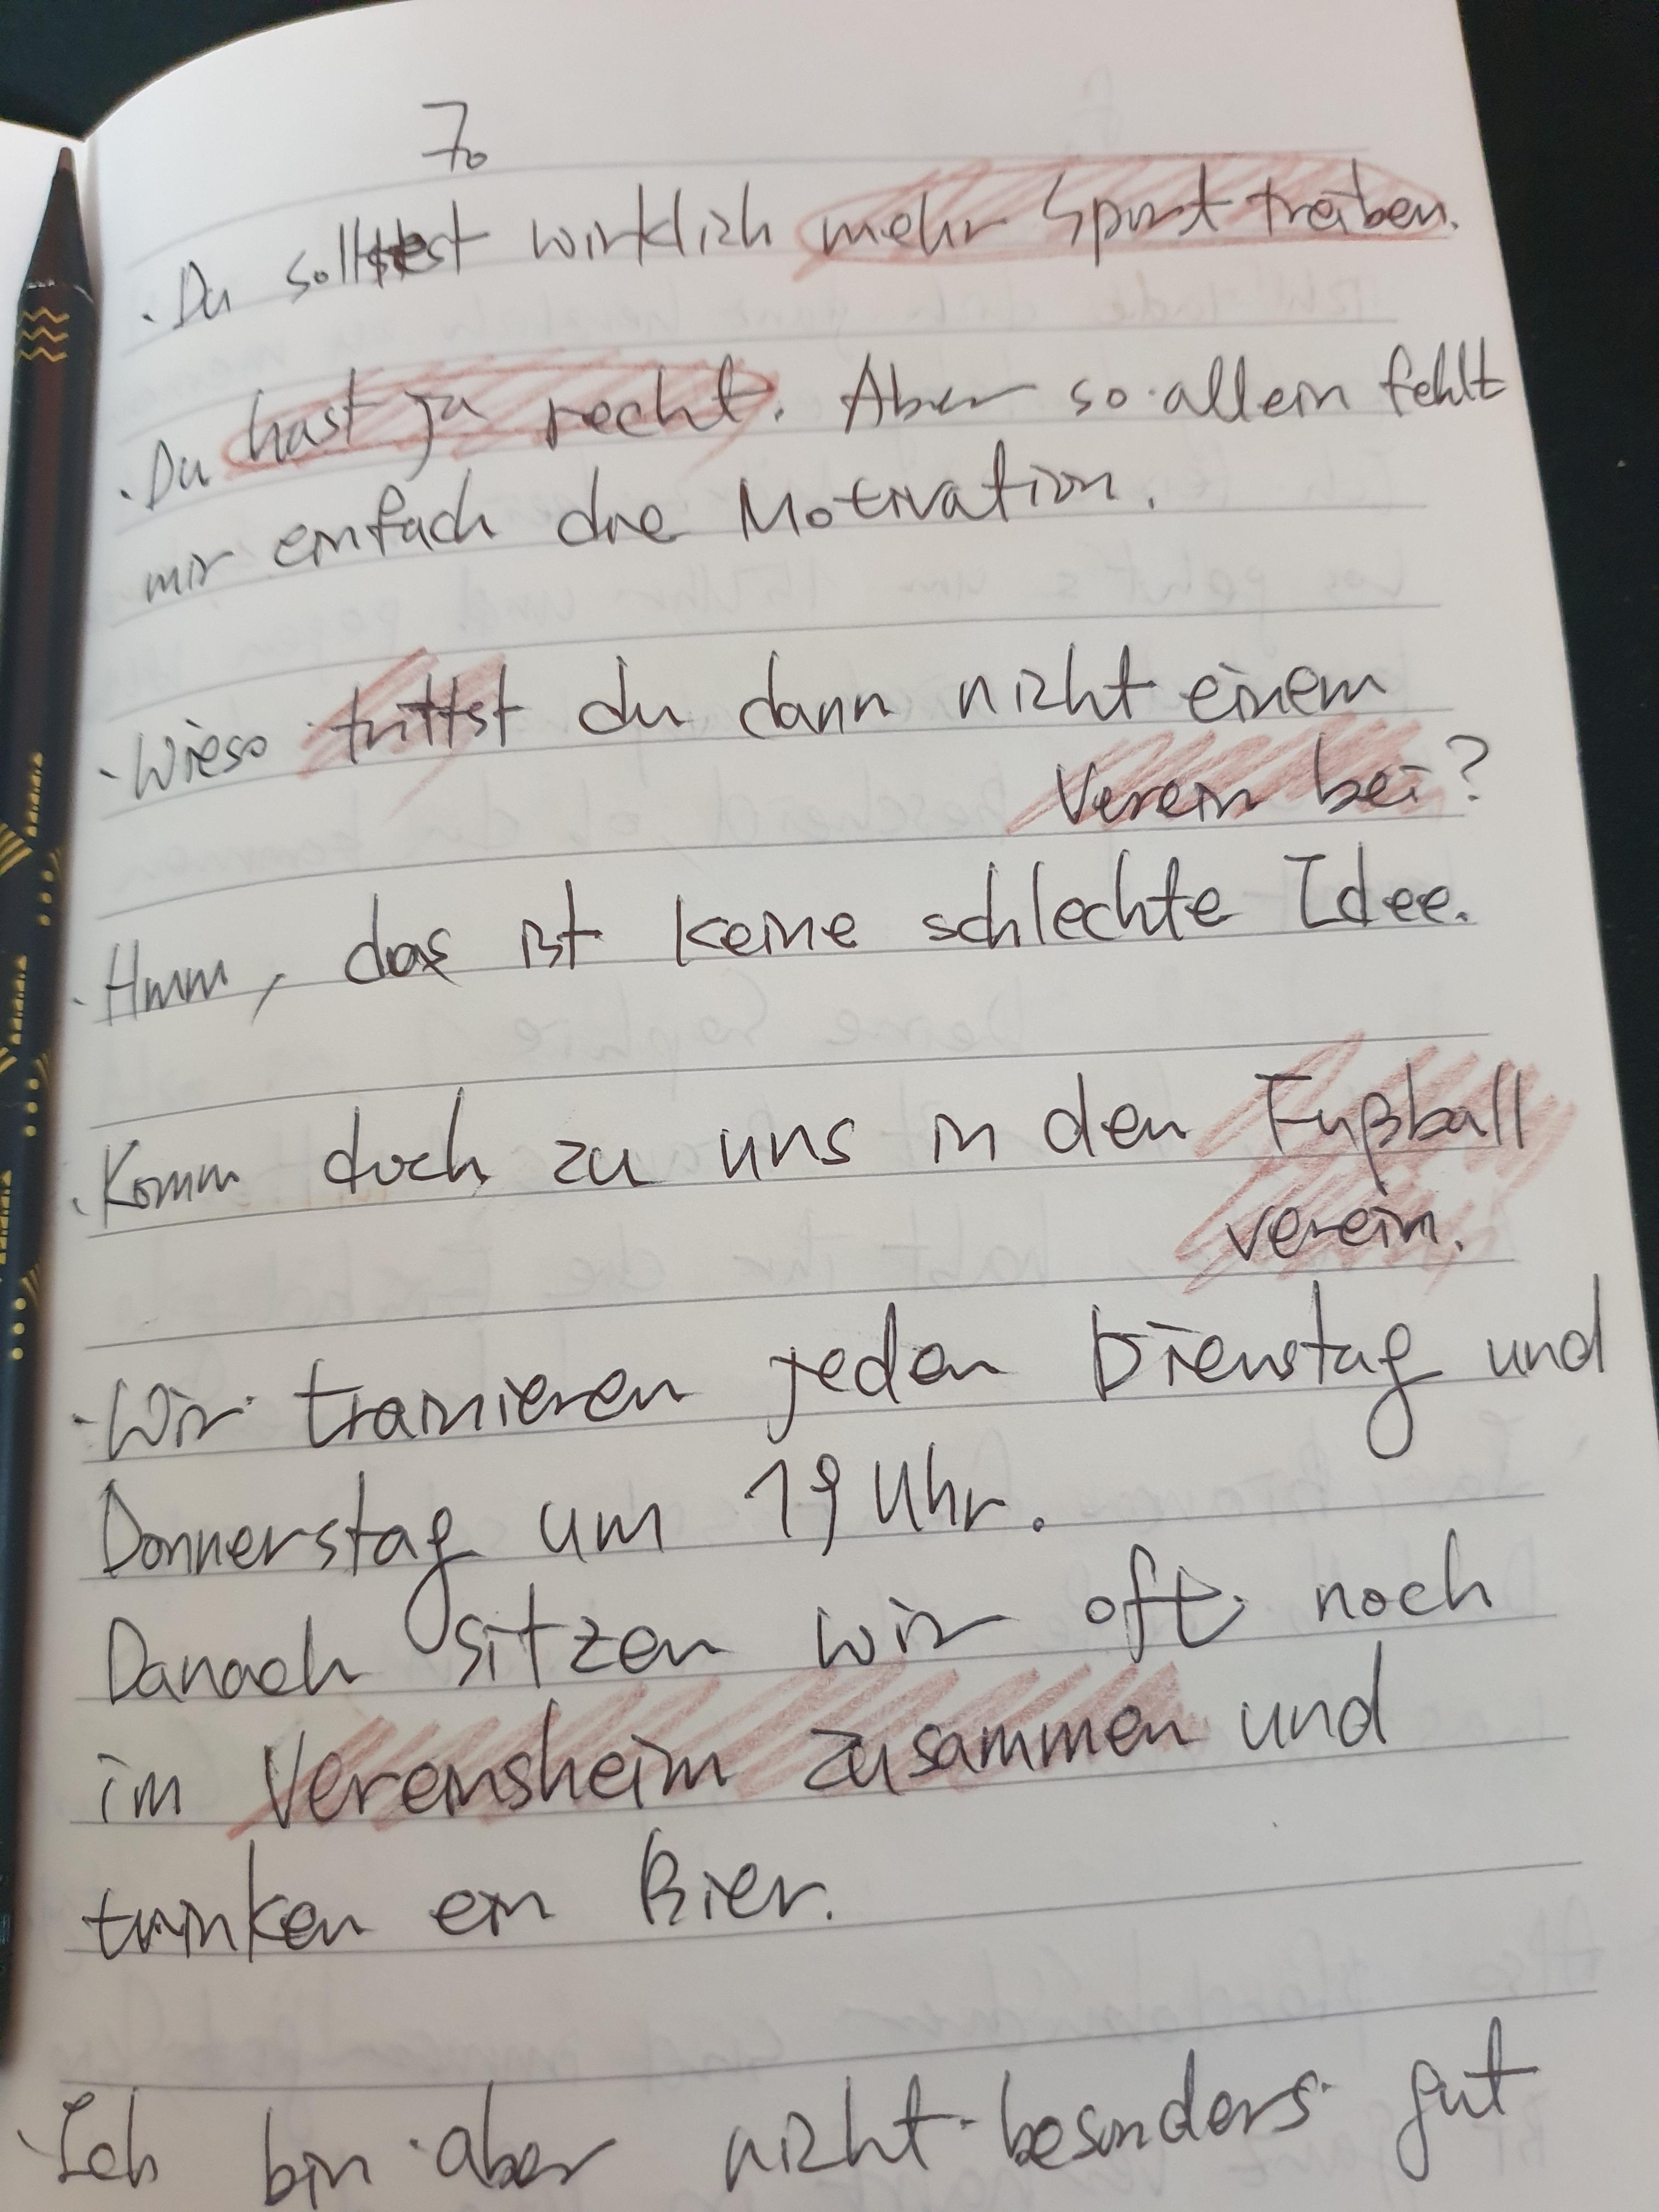 7.
· Du solltest wirklich mehr Sport treiben.
· Du hast ja recht. Aber so allein fehlt
mir einfach die Motivation.
· Wieso trittst du dann nicht einem
Verein bei?
· Hmm, das ist keine schlechte Idee.
· Komm doch zu uns in den Fußball
verein.
· Wir trainieren jeden Dienstag und
Donnerstag um 19 Uhr.
Danach sitzen wir oft noch
im Vereinsheim zusammen und
trinken ein Bier.
· Ich bin aber nicht besonders gut